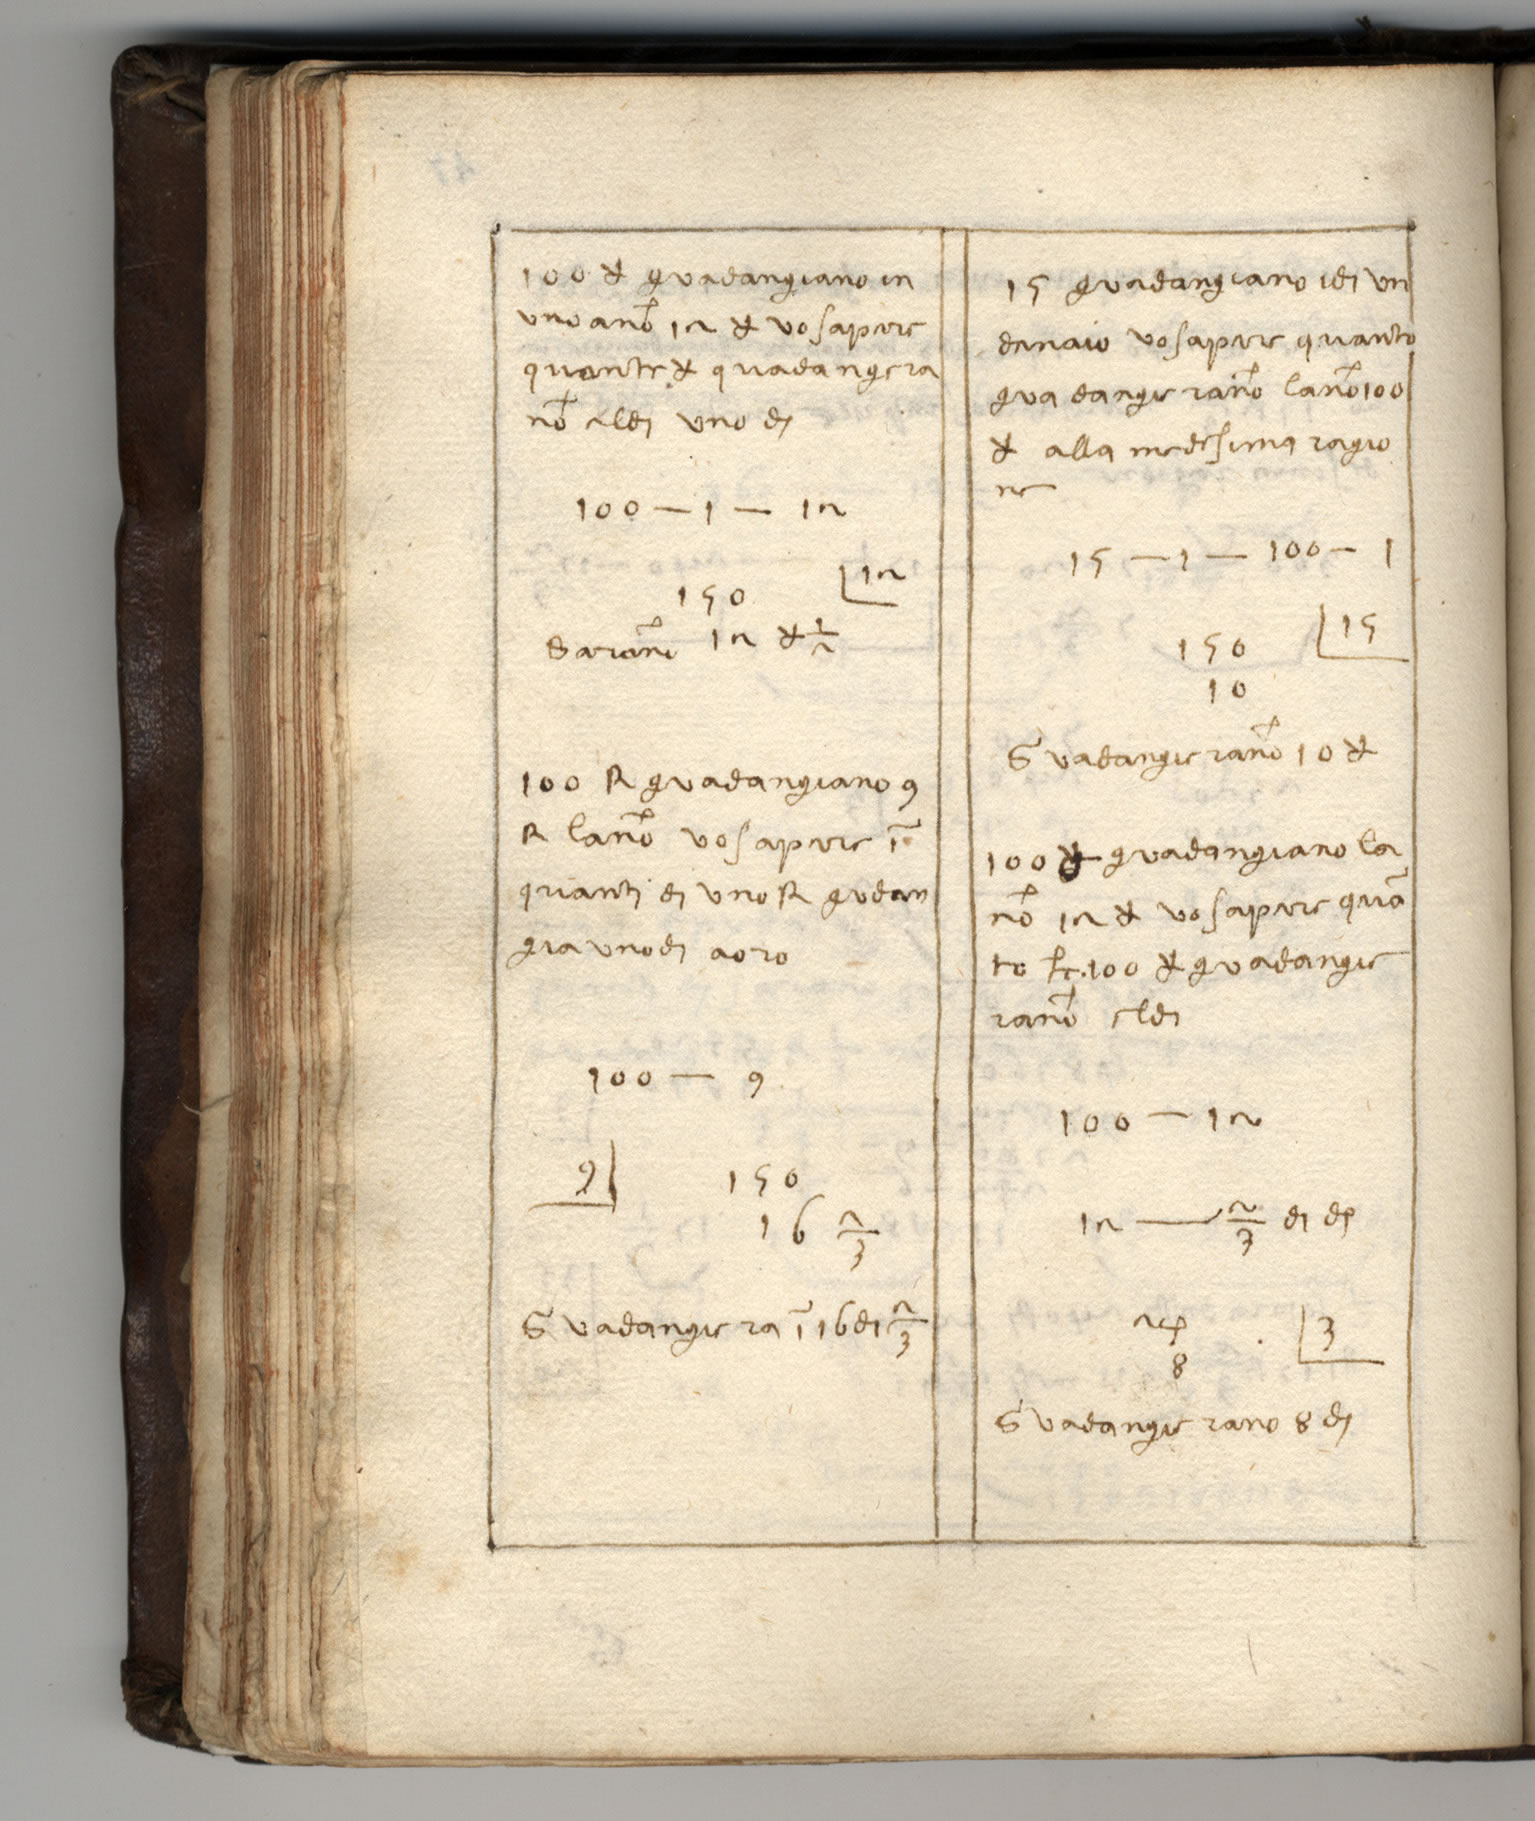 100 ▽ guadangiano in
uno anō 12 ▽ vo sapere
quante ▽ quadangera
nō el di uno di
100 — 1 — 12
150 12
Saranō 12 ▽ 1/2
100 R guadangiano 9
R lanō vo sapere ī
quanti di uno R gudan
gia uno di aoro
100 — 9
9 150
16 2/3
Guadangie ra ī 16 di 2/3
15 guadangiano i di un
denaio vo sapere quanto
guadangie ranō lanō 100
▽ alla medesima ragio
ne
15 — 1 — 100 — 1
150 15
10
Guadangie ranō 10 ▽
100 ▽ guadangiano la
nō 12 ▽ vo sapere quā
to 100 ▽ guadangie
ranō el di
100 — 12
12 — 2/3 di
24 3
8
Guadangie rano 8 di